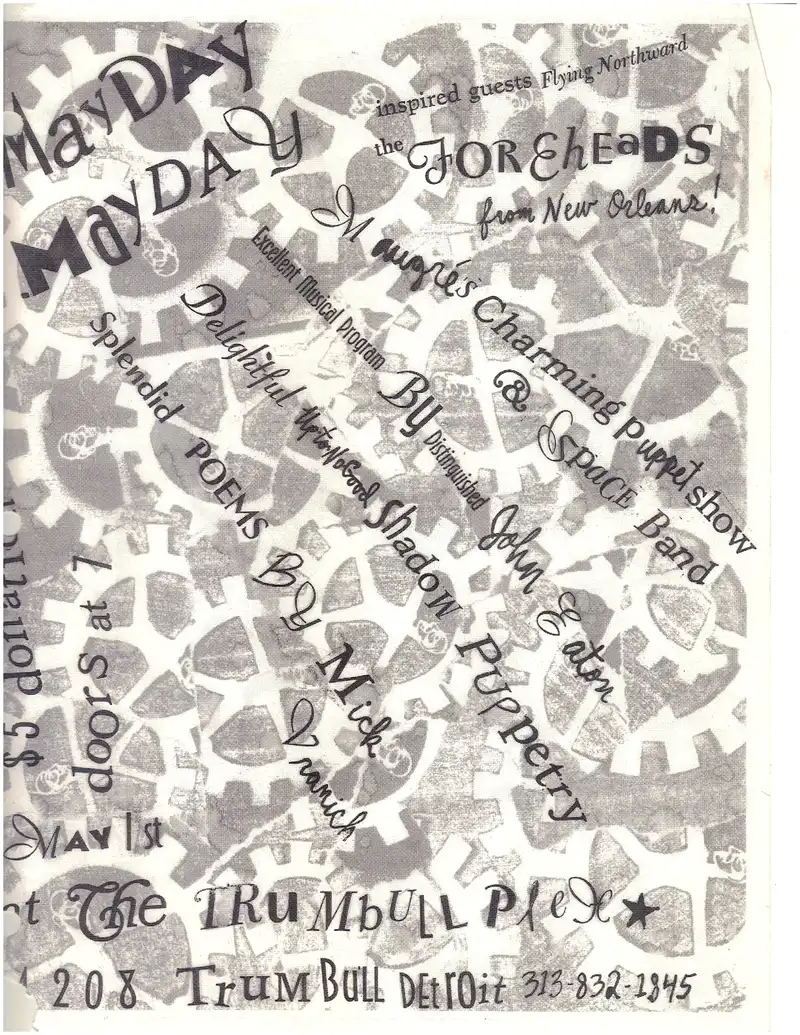 MayDAy
MayDAy
inspired guests Flying Northward
the FOREhEaDS
from New Orleans!
Maugré's Charming puppet show
@ Space Band
Excellent Musical Program By Distinguished John Eaton
Delightful UptoNoGood Shadow Puppetry
Splendid POEMS By Mick Vranich
$5 donation
doors at 7
MAY 1st
at The TRuMbULL Plex★
4208 TruMBuLL DEtrOit 313-832-1845